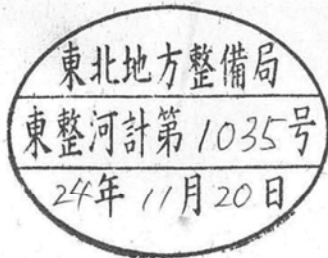 東北地方整備局
東整河計第1035号
24年11月20日